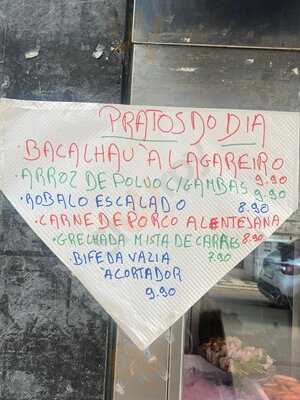 PRATOS DO DIA
·BACALHAU À LAGAREIRO
·ARROZ DE POLVO C/GAMBAS 9.90
·ROBALO ESCALADO 8.90 9.90
·CARNE DE PORCO ALENTEJANA
·GRELHADA MISTA DE CARNES 8.90
·BIFE DA VAZIA 7.90
À CORTADOR
9.90